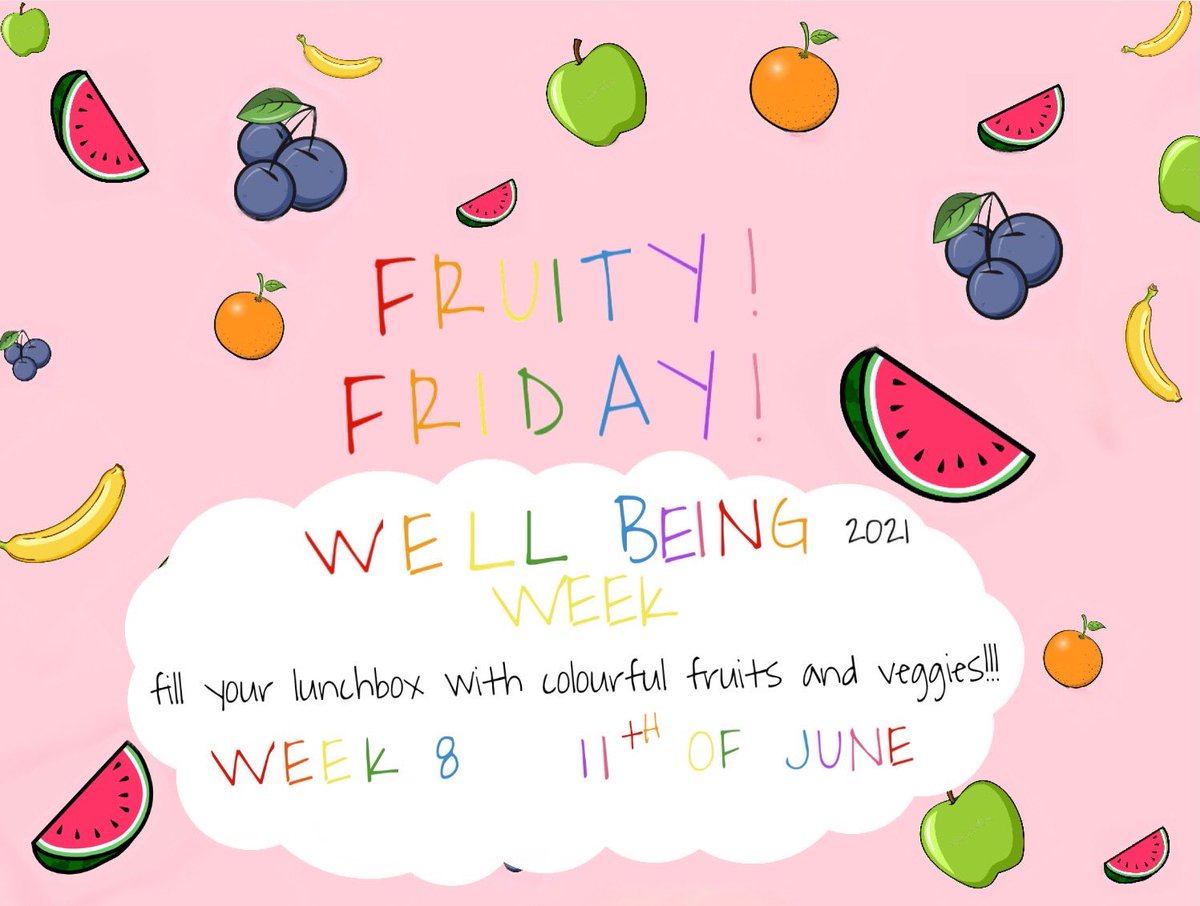 FRUITY!
FRIDAY!
WELL BEING 2021
WEEK
fill your lunchbox with colourful fruits and veggies!!!
WEEK 8 11TH OF JUNE